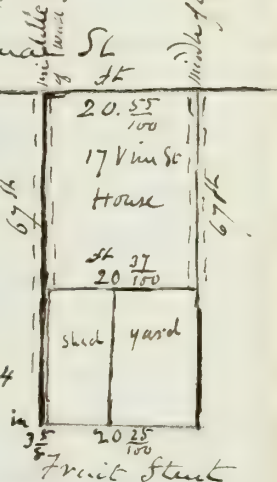 St
middle of
middle of
ft
20. 55/100
17 Vine St
House
67 ft
67 ft
ft
20 37/100
shed yard
4
in
3 5/8
20 25/100
Fruit Street